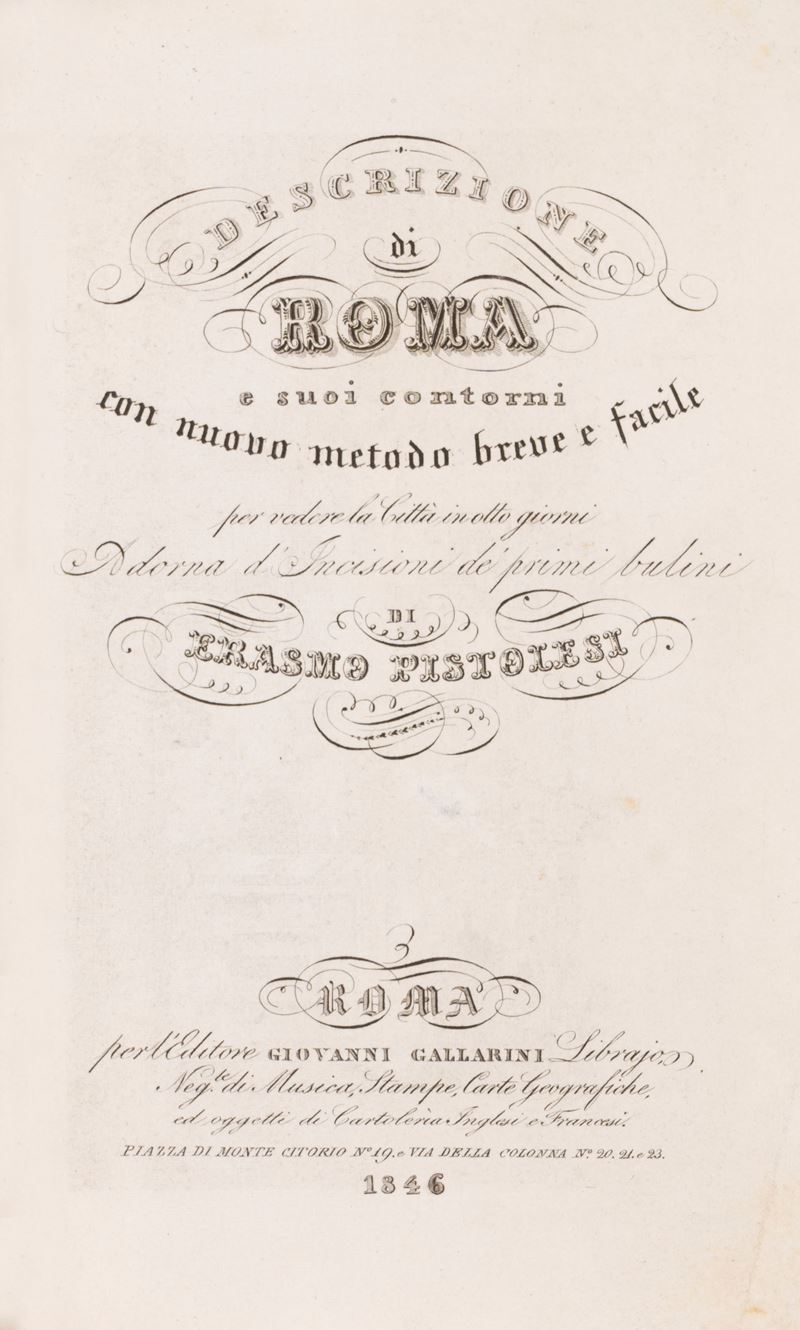 DESCRIZIONE
di
ROMA
e suoi contorni
con nuovo metodo breve e facile
per vedere la Città in otto giorni
Adorna d'Incisioni de' primi bulini
DI
ERASMO PISTOLESI
ROMA
per l'Editore GIOVANNI GALLARINI Librajo
Neg.te di Musica, Stampe, Carte Geografiche,
ed oggetti di Cartoleria Inglesi e Francesi.
PIAZZA DI MONTE CITORIO Nº 19. e VIA DELLA COLONNA Nº 20. 21. e 23.
1846